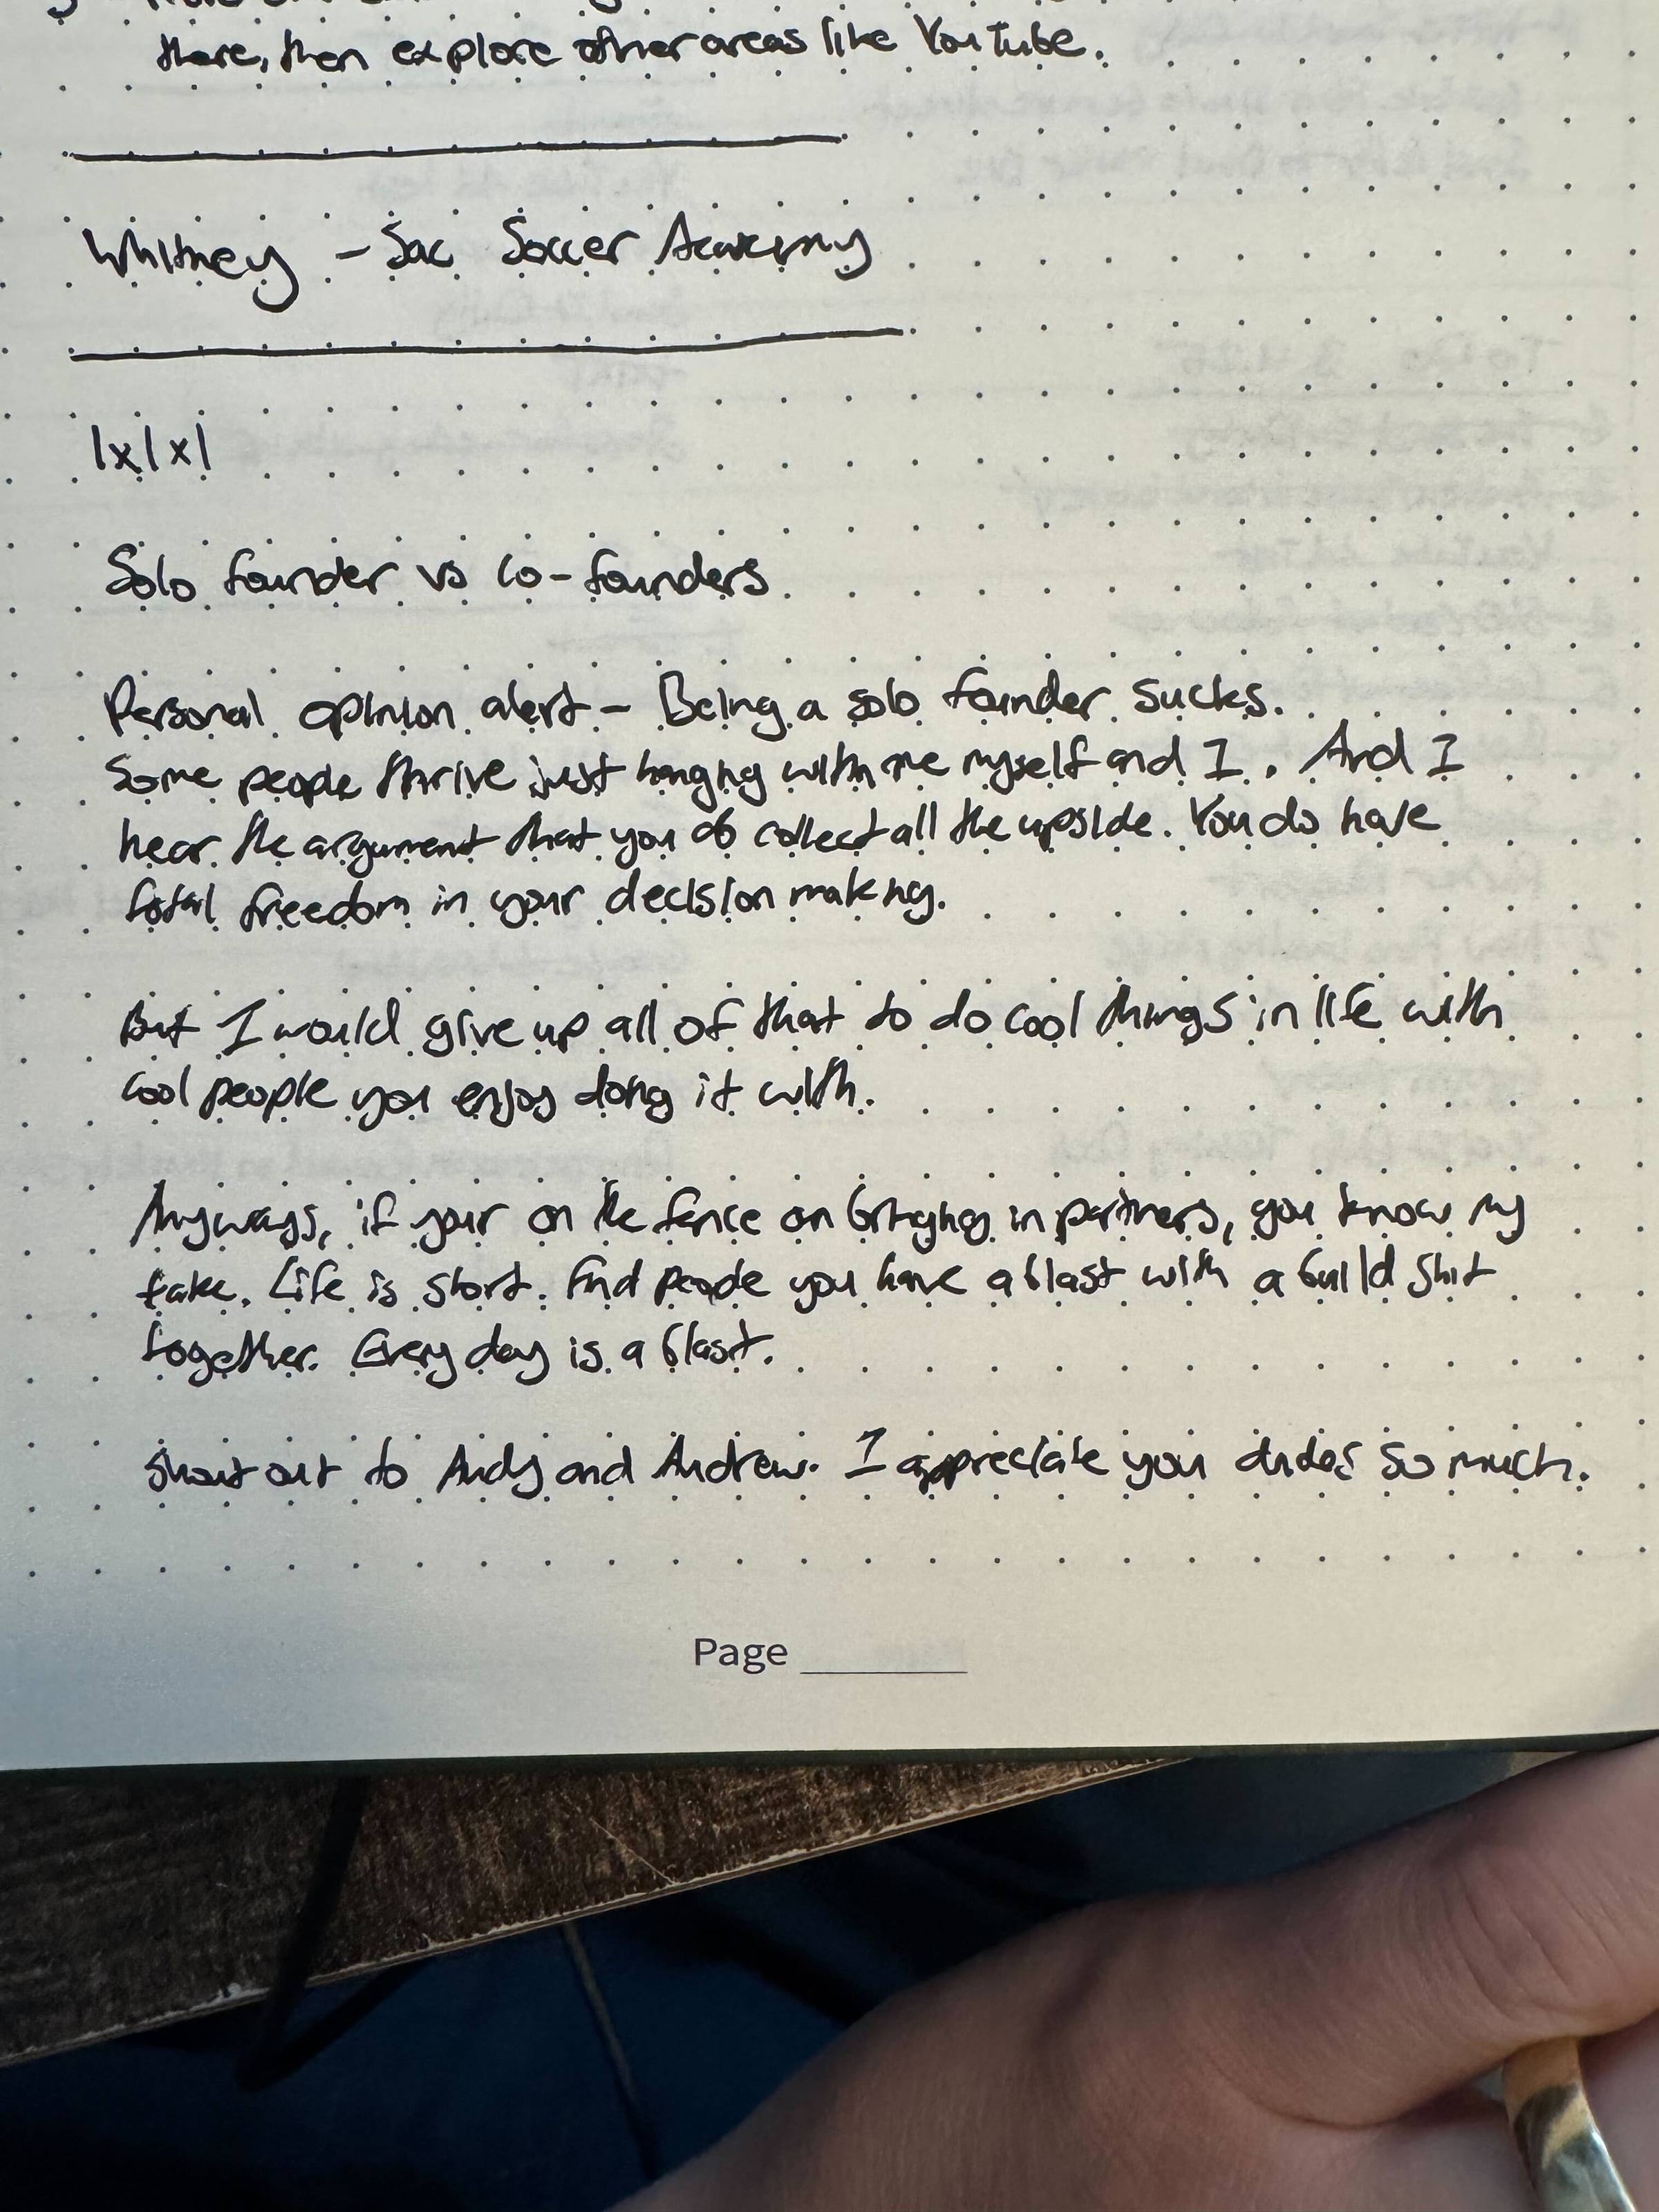 there, then explore other areas like YouTube.
Whitney - Sac Soccer Academy
|x|x|
Solo founder vs Co-founders
Personal opinion alert - Being a solo founder sucks.
Some people thrive just hanging with me myself and I. And I
hear the argument that you do collect all the upside. You do have
total freedom in your decision making.
But I would give up all of that to do cool things in life with
cool people you enjoy doing it with.
Anyways, if your on the fence on bringing in partners, you know my
take. Life is short. Find people you have a blast with a build shit
together. Every day is a blast.
Shout out to Andy and Andrew. I appreciate you dudes so much.
Page